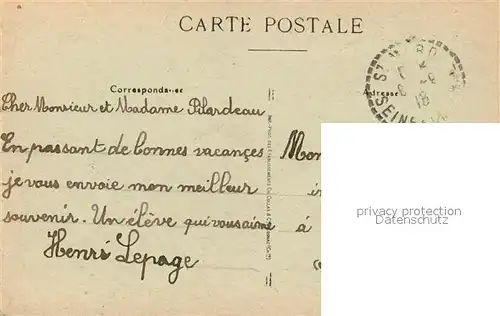 CARTE POSTALE
Correspondance
Adresse
Cher Monsieur et Madame Pilardeau
En passant de bonnes vacances
je vous envoie mon meilleur
souvenir. Un élève qui vous aime
Henri Lepage
Mon
à
privacy protection
Datenschutz